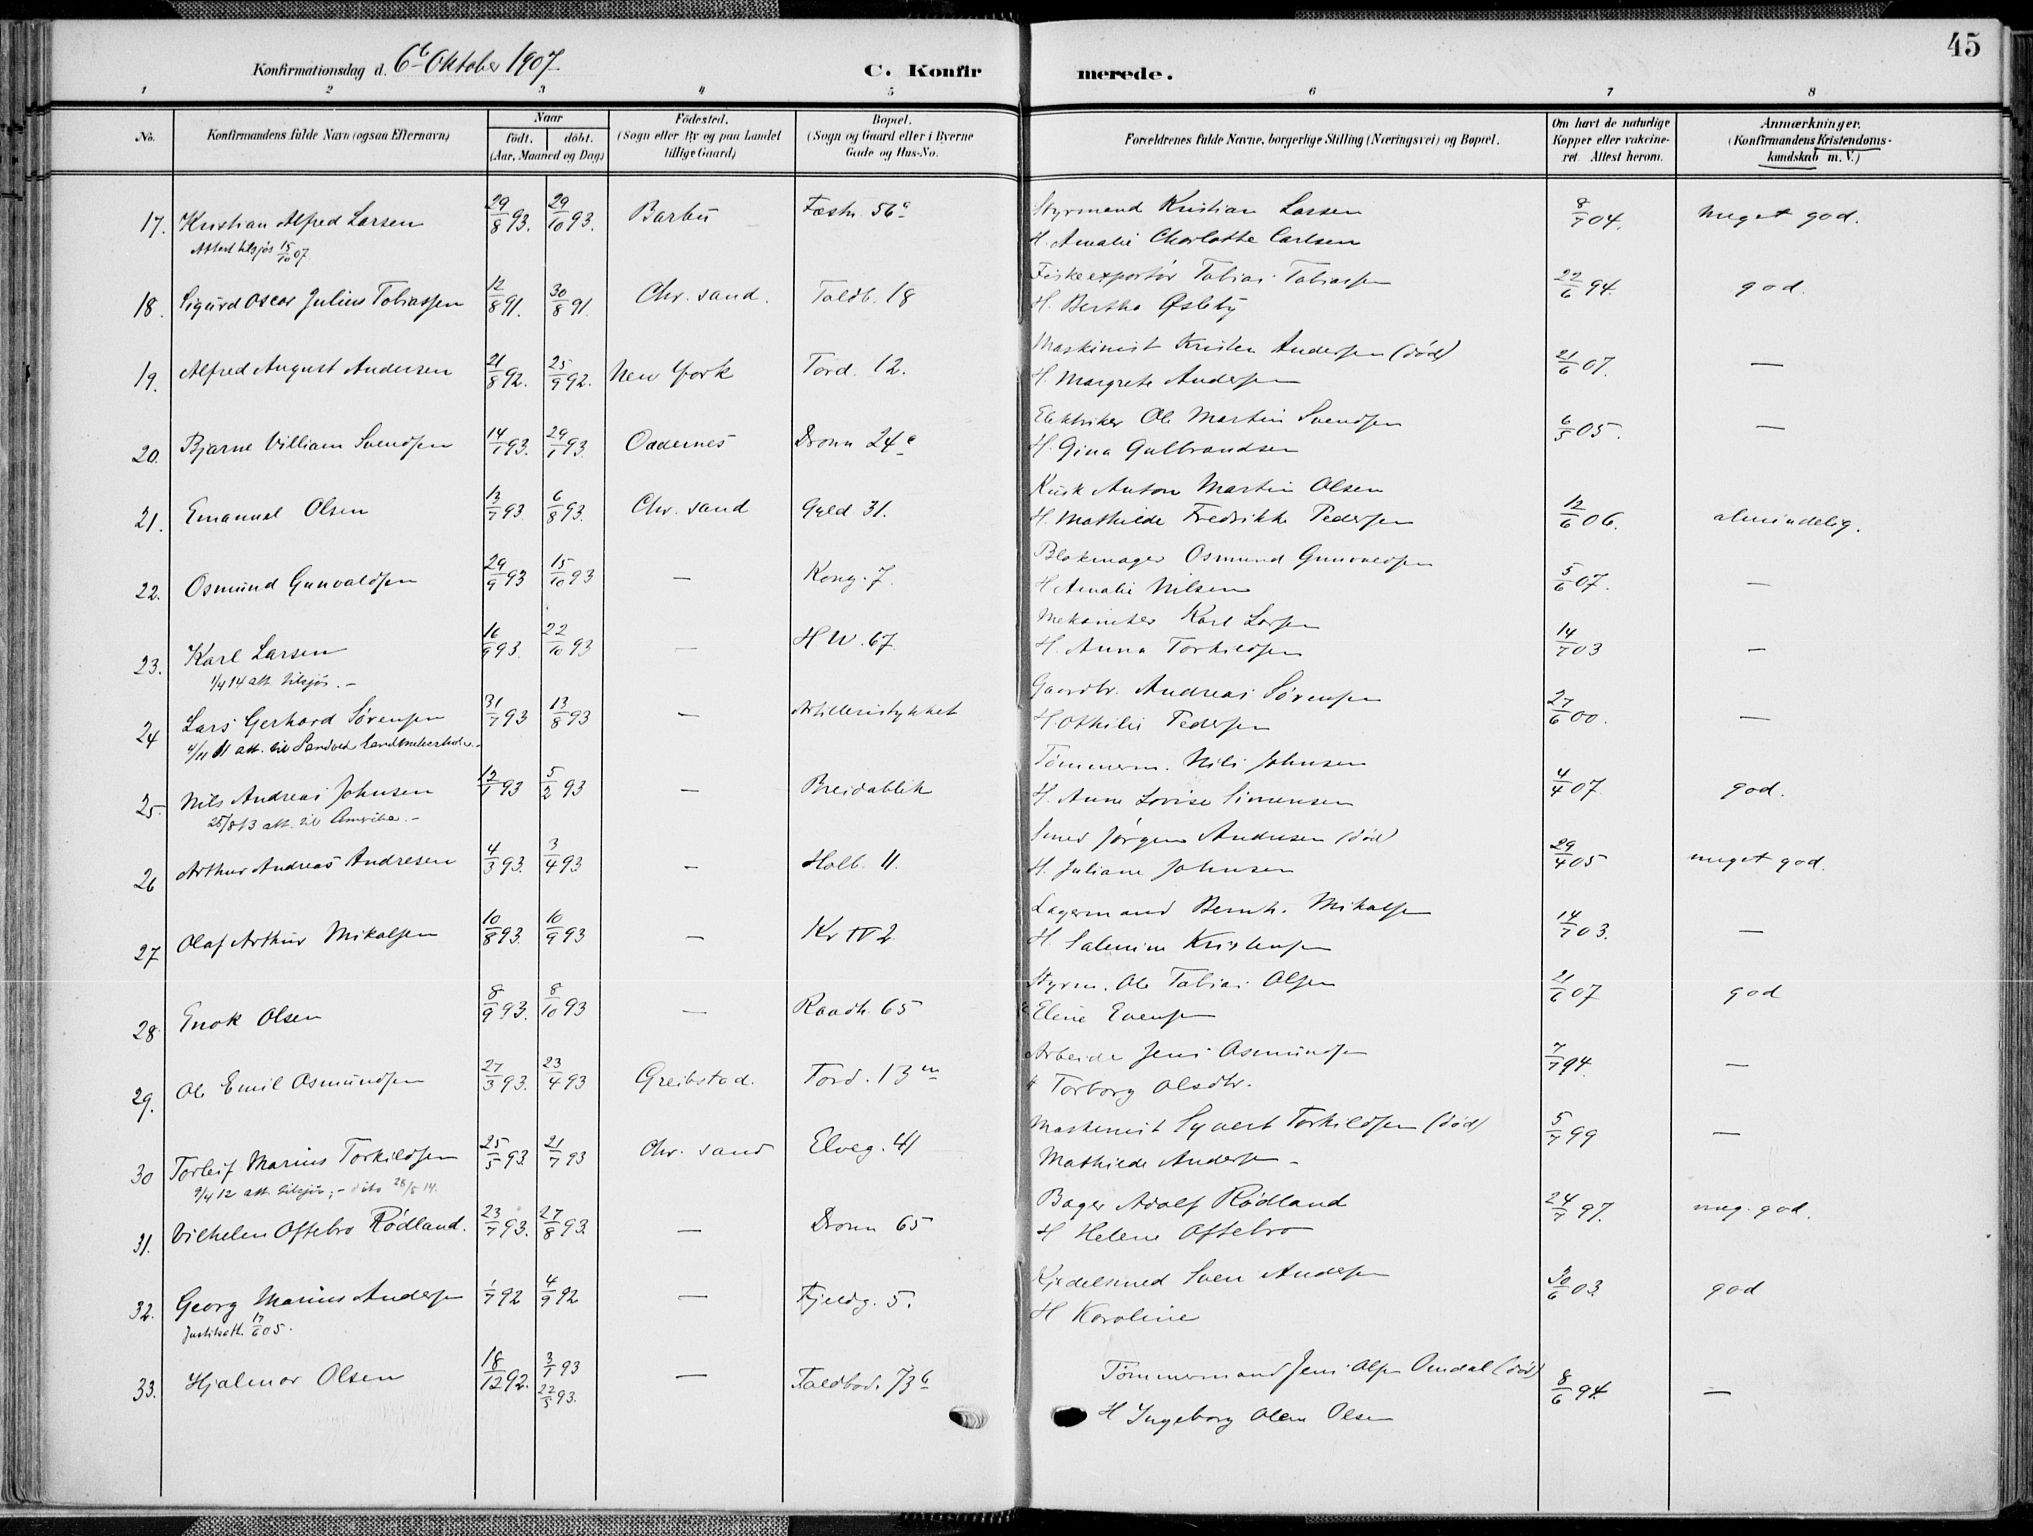 45
Konfirmationsdag d. 6te Oktober 1907
C. Konfirmerede.
1 2 3 4 5 6 7 8
No.
Konfirmandens fulde Navn (ogsaa Efternavn)
Naar
født. døbt.
(Aar, Maaned og Dag)
Fødested.
(Sogn eller By og paa Landet
tillige Gaard)
Bopæl.
(Sogn og Gaard eller i Byerne
Gade og Hus-No.
Forældrenes fulde Navne, borgerlige Stilling (Næringsvei) og Bopæl.
Om havt de naturlige
Kopper eller vakcine-
ret. Attest herom.
Anmærkninger.
(Konfirmandens Kristendoms-
kundskab m. V.)
17. Kristian Alfred Larsen 29/8 93. 29/10 93. Barbu Fæstn. 56a Styrmand Kristian Larsen 8/7 04. meget god.
Attest tilsjøs 15/10 07.
H. Amalie Charlotte Carlsen
18. Sigurd Oscar Julius Tobiassen 12/8 91. 30/8 91. Chr. sand. Toldb. 18 Fiskeexportør Tobias Tobiassen 22/6 94. god.
H. Bertha Øsleby
19. Alfred August Andersen 21/8 92. 25/9 92. New York Tord. 12. Maskinist Kristen Andersen (død) 21/6 07. —
H. Margrete Andersen
20. Bjarne William Svendsen 14/ 93. 29/ 93. Oddernes Dronn 24c Elektriker Ole Martin Svendsen 6/5 05. —
H. Gina Gulbrandsen
21. Emanuel Olsen 13/7 93. 6/8 93. Chr. sand Gyld 31. Kusk Anton Martin Olsen 12/6 06. almindelig.
H. Mathilde Fredrikke Pedersen
22. Osmund Gunvaldsen 29/9 93 15/10 93 — Kong. 7. Blokmager Osmund Gunvaldsen 5/6 07. —
H Amalie Nilsen
23. Karl Larsen 16/9 93. 22/10 93 — H W. 67. Mekaniker Karl Larsen 14/7 03 —
1/4 14 att. tilsjøs. —
H. Anna Torkildsen
24 Lars Gerhard Sørensen 31/7 93 13/8 93 — Artilleristykket Gaardbr. Andreas Sørensen 27/6 00. —
4/11 11 att. til
H. Othilie Pedersen
25. Nils Andreas Johnsen 12/1 93 5/2 93 — Breidablik Tømmerm. Nils Johnsen 4/4 07. god.
25/8 13 att. til Amerika. —
H. Anne Lovise Simensen
26 Arthur Andreas Andresen 4/3 93. 3/4 93 — Holb. 11. Smed Jørgen Andresen (død) 29/4 05 meget god.
H. Juliane Johnsen
27 Olaf Arthur Mikalsen 10/8 93. 10/9 93 — Kr IV 2. Lagermand Bernh. Mikalsen 14/7 03. —
H. Salmine Kristensen
28. Enok Olsen 8/9 93. 8/10 93 — Raadh. 65 Styrm. Ole Tobias Olsen 21/6 07 god
Eline Evensen
29. Ole Emil Osmundsen 27/3 93. 23/4 93 Greibstad. Tord. 13 Arbeider Jens Osmundsen 7/7 94. —
Torborg Olsdtr.
30 Torleif Marius Torkildsen 25/5 93. 21/7 93 Chr. sand Elveg. 41 Maskinist Syvert Torkildsen (død) 5/7 99 —
9/4 12 att. tilsjøs; — dito 28/5 14.
Mathilde Andersen —
31. Vilhelm Oftebro Rødland. 23/7 93. 27/8 93. — Dronn 65 Bager Adolf Rødland 24/7 97. meg. god.
H Helene Oftebro
32. Georg Marius Andersen 1/7 92 4/9 92 — Fjeldg. 5. Kjedelsmed Sven Andersen 30/6 03. god
17/6 05.
H Karoline
33. Hjalmar Olsen 18/12 92. 3/1 93 — Toldbod. 73b Tømmermand Jens Olsen Omdal (død) 8/6 94. —
22/5 93.
H Ingeborg Olene Olsen